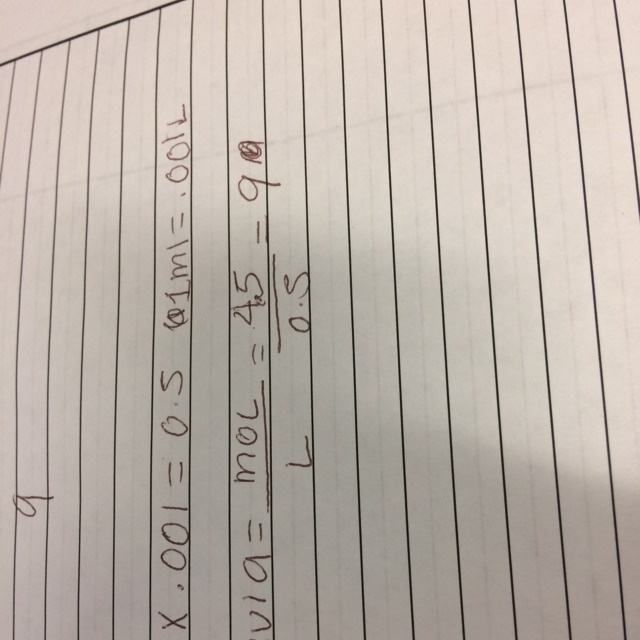 9
x .001 = 0.5 1ml = .001L
via = mol = 4.5 = 9
L 0.5